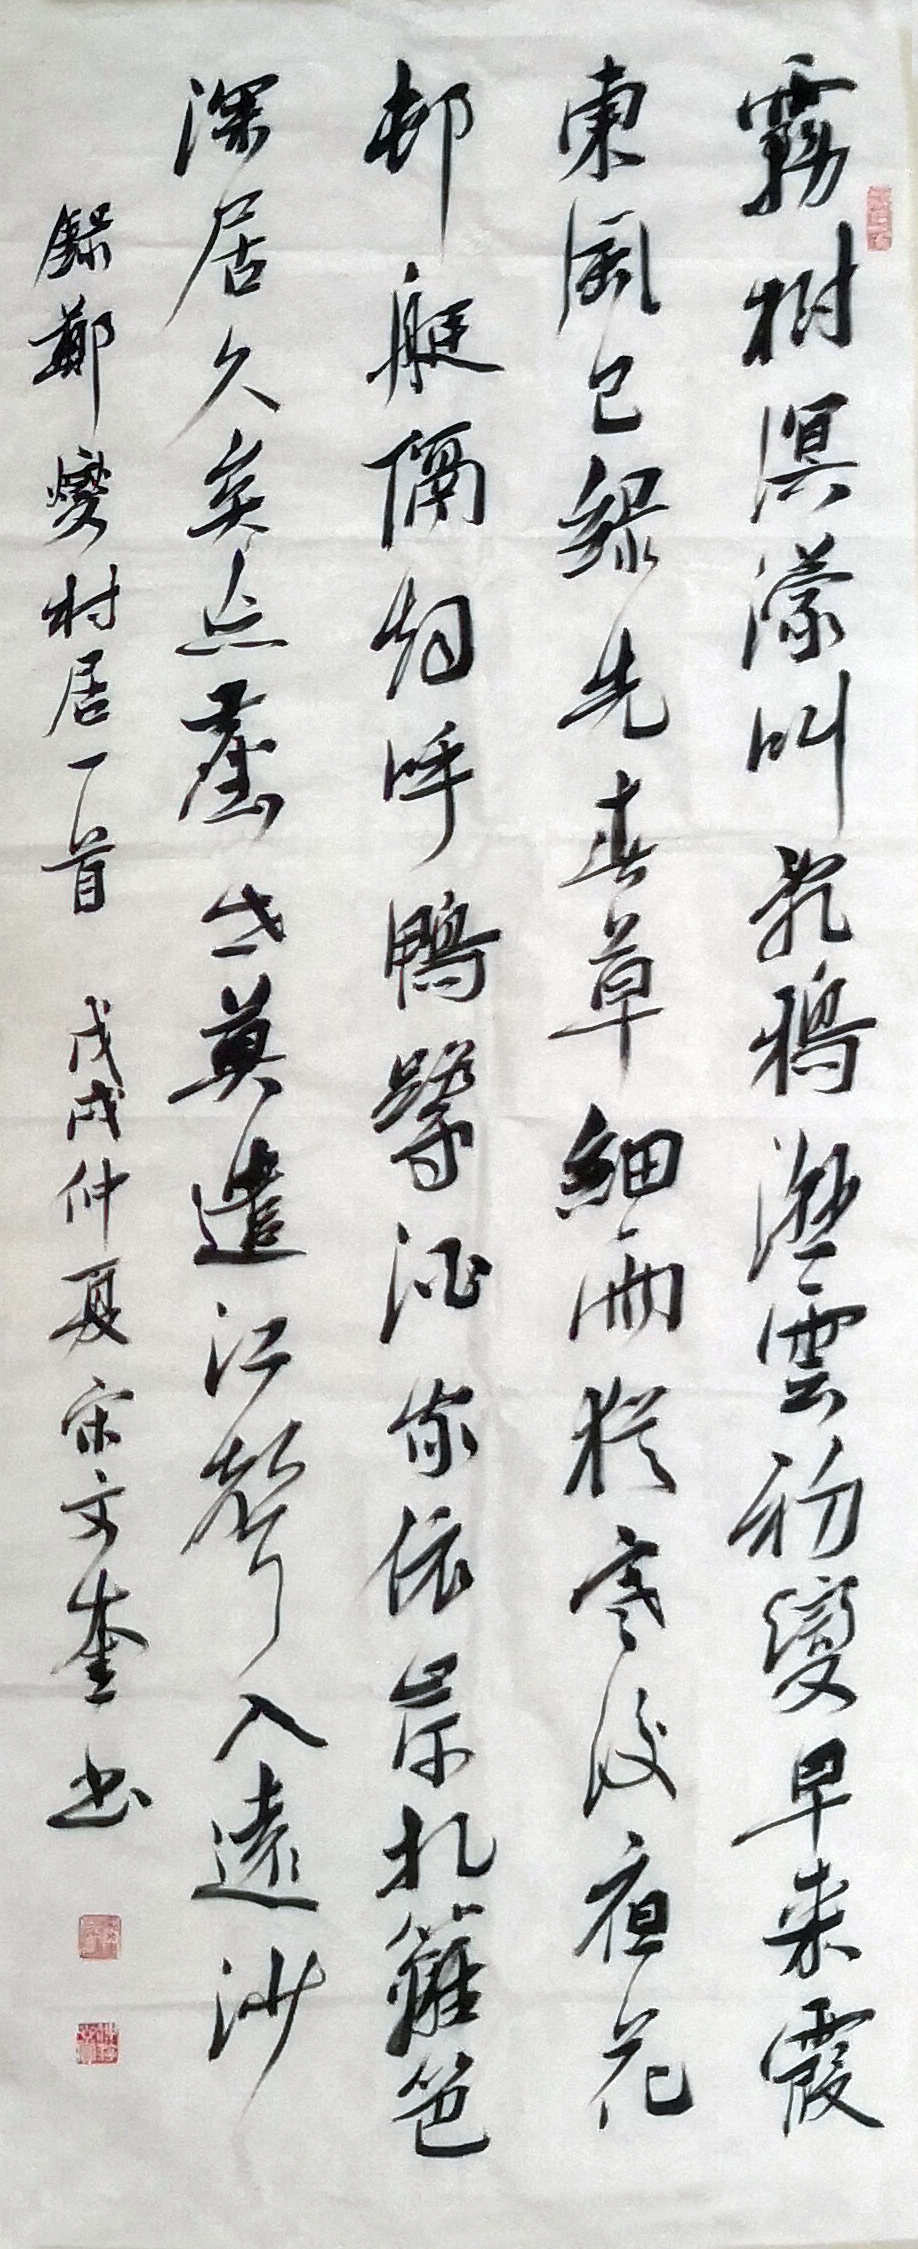 霧樹溟濛叫乱鴉溼雲初變早来霞
東風已緑先春草細雨猶寒後夜花
邨艇隔烟呼鴨鶩酒家依岸扎籬笆
深居久矣忘塵世莫遣江聲入遠沙
録鄭燮村居一首 戊戌仲夏宋文奎书